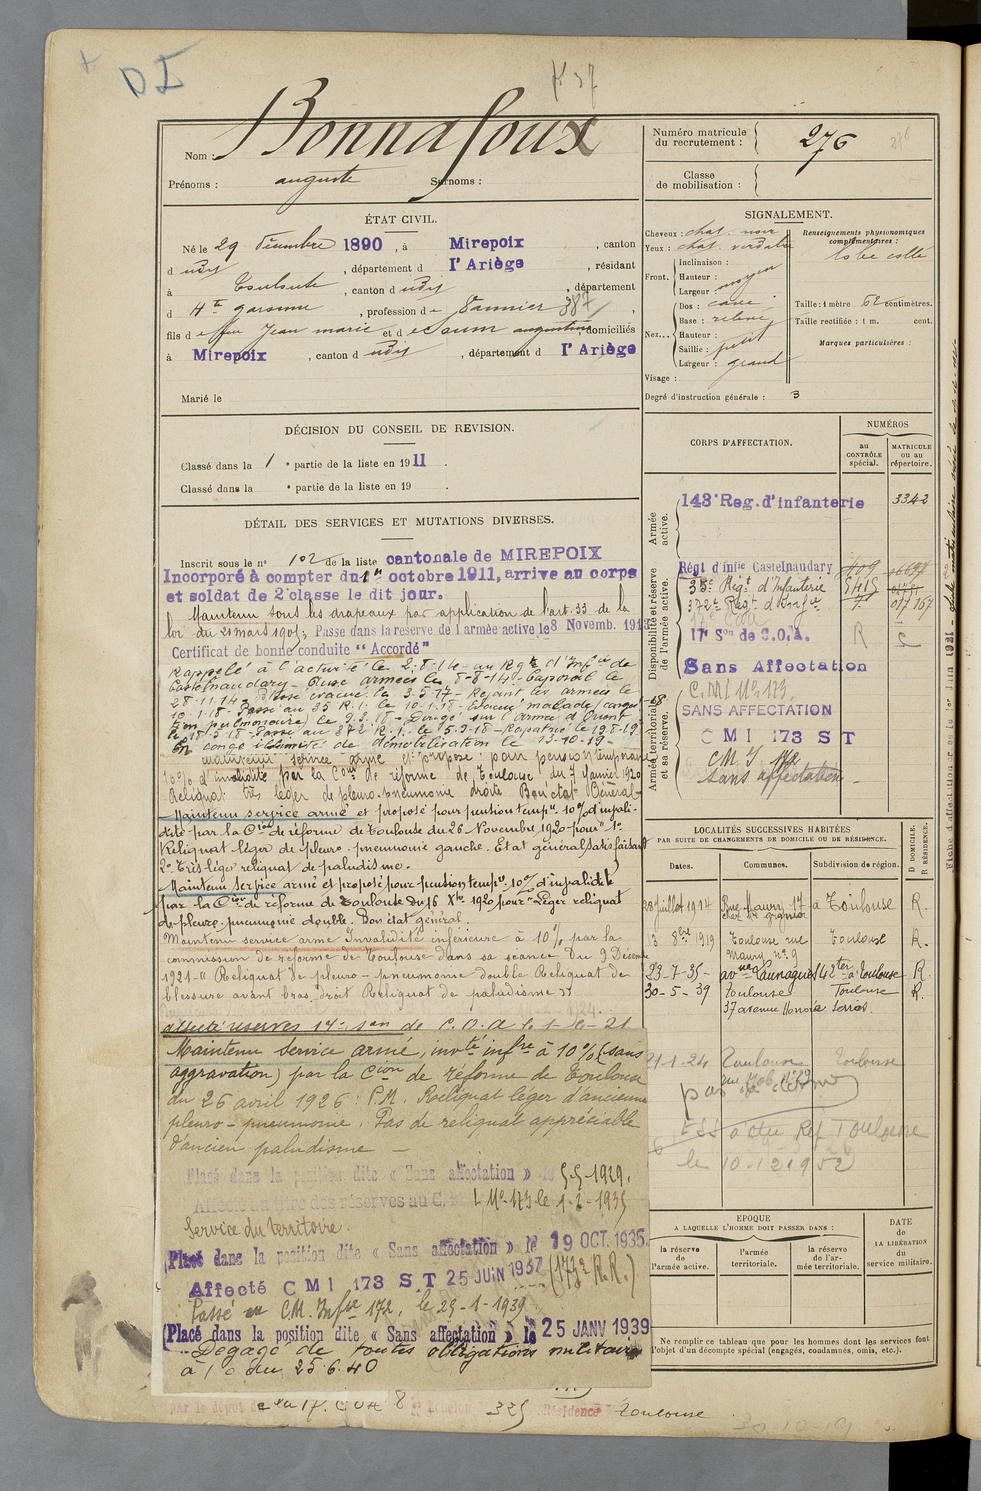 D I
Nom : Bonnafoux
Prénoms : auguste Surnoms :
ÉTAT CIVIL.
Né le 29 Décembre 1890, à Mirepoix, canton
d udit, département d l'Ariège, résidant
à Toulouse, canton d udit, département
d Hte garonne, profession de Vannier 387
fils de feu Jean marie et de augustine, domiciliés
à Mirepoix, canton d udit, département d l'Ariège
Marié le
DÉCISION DU CONSEIL DE REVISION.
Classé dans la 1e partie de la liste en 1911.
Classé dans la e partie de la liste en 19 .
DÉTAIL DES SERVICES ET MUTATIONS DIVERSES.
Inscrit sous le n° 102 de la liste cantonale de MIREPOIX
Incorporé à compter du 1er octobre 1911, arrive au corps
et soldat de 2e classe le dit jour.
Maintenu sous les drapeaux par application de l'art. 33 de la
loi du 21 mars 1905, Passe dans la réserve de l'armée active le 8 Novemb. 1913
Certificat de bonne conduite "Accordé"
Rappelé à l'activité le 2-8-14 au Rgt d'Infie de
Castelnaudary. Aux armées le 8-8-14. Caporal le
28-11-14. évacué le 3-5-17 - Rejoint les armées le
10-1-18 - Passé au 35 R.I. le 10-1-18 - Evacué malade (conges
tion pulmonaire) le 9-3-18 - Dirigé sur l'armée d'Orient
le 18-5-18. Passé au 372 R.I. le 5-9-18 - Rapatrié le 19-8-19
En congé illimité de démobilisation le 13-10-19
maintenu service armé et proposé pour pension temporaire
10% d'invalidité par la Con de réforme de Toulouse du 7 Janvier 1920
Reliquat très léger de pleuro-pneumonie droite Bon état Général
Maintenu service armé et proposé pour pension tempre 10% d'invali-
dité par la Cion de réforme de Toulouse du 26 Novembre 1920 pour 1°
Reliquat léger de pleuro-pneumonie gauche. Etat général satisfaisant
2° Très léger reliquat de paludisme.
Maintenu service armé et proposé pour pension tempre 10% d'invalidité
par la Cion de réforme de Toulouse du 16 Xbre 1920 pour " Léger reliquat
de pleuro-pneumonie double. Bon état général.
Maintenu service armé Invalidité inférieure à 10% par la
commission de réforme de Toulouse dans sa séance du 9 Décembre
1921 " Reliquat de pleuro-pneumonie double Reliquat de
blessure avant bras droit Reliquat de paludisme
affecté réserves 17e Son de C.O.A le 1-6-21
Maintenu service armé, invté infre à 10% (sans
aggravation) par la Cion de réforme de Toulouse
du 26 avril 1926 : P.M. Reliquat léger d'ancienne
pleuro-pneumonie. Pas de reliquat appréciable
d'ancien paludisme -
Placé dans la position dite « Sans affectation » le 5-5-1929.
Affecté au titre des réserves au C. M. I. No 173 le 1-2-1935
Service du territoire.
Placé dans la position dite « Sans affectation » le 19 OCT. 1935.
Affecté C M I 173 S.T 25 JUIN 1937 (173e R.R.)
Passé au CM. Infie 172, le 25-1-1939
Placé dans la position dite « Sans affectation » le 25 JANV 1939
Dégagé de toutes obligations militaires
à / c du 25.6.40
Résidence Toulouse
Numéro matricule
du recrutement : 276
Classe
de mobilisation :
SIGNALEMENT.
Cheveux : chat. noir
Yeux : chat. verdatre
Front. Inclinaison :
Hauteur :
Largeur moyen
Nez... Dos : cavé
Base : relevé
Hauteur :
Saillie : petit
Largeur : grand
Visage :
Renseignements physionomiques
complémentaires :
lobe collé
Taille : 1 mètre 62 centimètres.
Taille rectifiée : 1 m. cent.
Marques particulières :
Degré d'instruction générale : 3
CORPS D'AFFECTATION.
NUMÉROS
au
CONTRÔLE
spécial.
MATRICULE
ou au
répertoire.
Armée
active.
143e Reg. d'infanterie 3342
Disponibilité et réserve
de l'armée active.
Régt d'infie Castelnaudary
35e Rigt d'Infanterie
372e Regt d'Infie
17e Son de C.O.A.
Sans Affectation
Armée territoriale
et sa réserve.
C.M.I No 173
SANS AFFECTATION
C M I 173 S T
C M I 172
Sans affectation
LOCALITÉS SUCCESSIVES HABITÉES
PAR SUITE DE CHANGEMENTS DE DOMICILE OU DE RÉSIDENCE.
Dates. Communes. Subdivision de région. D DOMICILE. R RÉSIDENCE.
28 juillet 1914 Rue Maury 17 à Toulouse R.
13 8bre 1919 Toulouse rue Toulouse R.
Maury n° 9
23-7-35 - avnue Launaguet 142ter à Toulouse R.
30-5-39 Toulouse Toulouse R.
37 avenue Honoré Serres.
21-1-24 Toulouse Toulouse
Toulouse
le 10-12 1952
EPOQUE
A LAQUELLE L'HOMME DOIT PASSER DANS :
la réserve
de
l'armée active.
l'armée
territoriale.
la réserve
de l'ar-
mée territoriale.
DATE
de
LA LIBÉRATION
du
service militaire.
Ne remplir ce tableau que pour les hommes dont les services font
l'objet d'un décompte spécial (engagés, condamnés, omis, etc.).